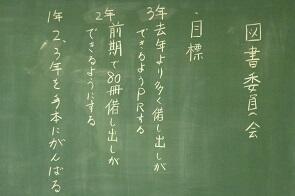 図書委員会
・目標
3年去年より多く借し出しが
できるようPRする
2年前期で80冊借し出しが
できるようにする
1年2、3年を手本にがんばる